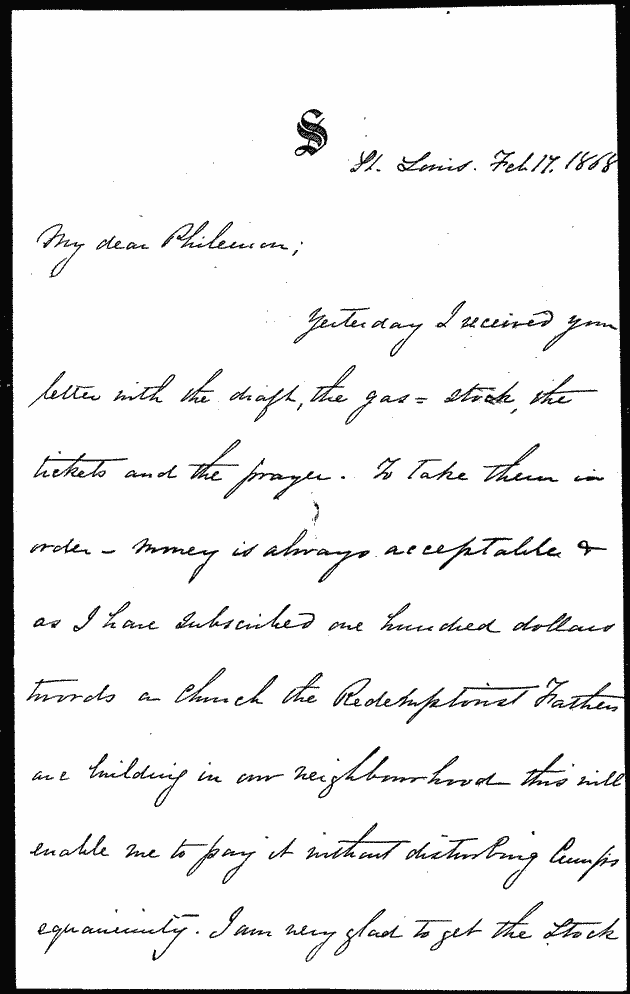 S
St. Louis. Feb. 17. 1868
My dear Philemon;
Yesterday I received your
letter with the draft, the gas = stock, the
tickets and the prayer. To take them in
order – money is always acceptable &
as I have subscribed one hundred dollars
twords a Church the Redemptorist Fathers
are building in our neighbourhood this will
enable me to pay it without disturbing Cump's
equanimity. I am very glad to get the Stock